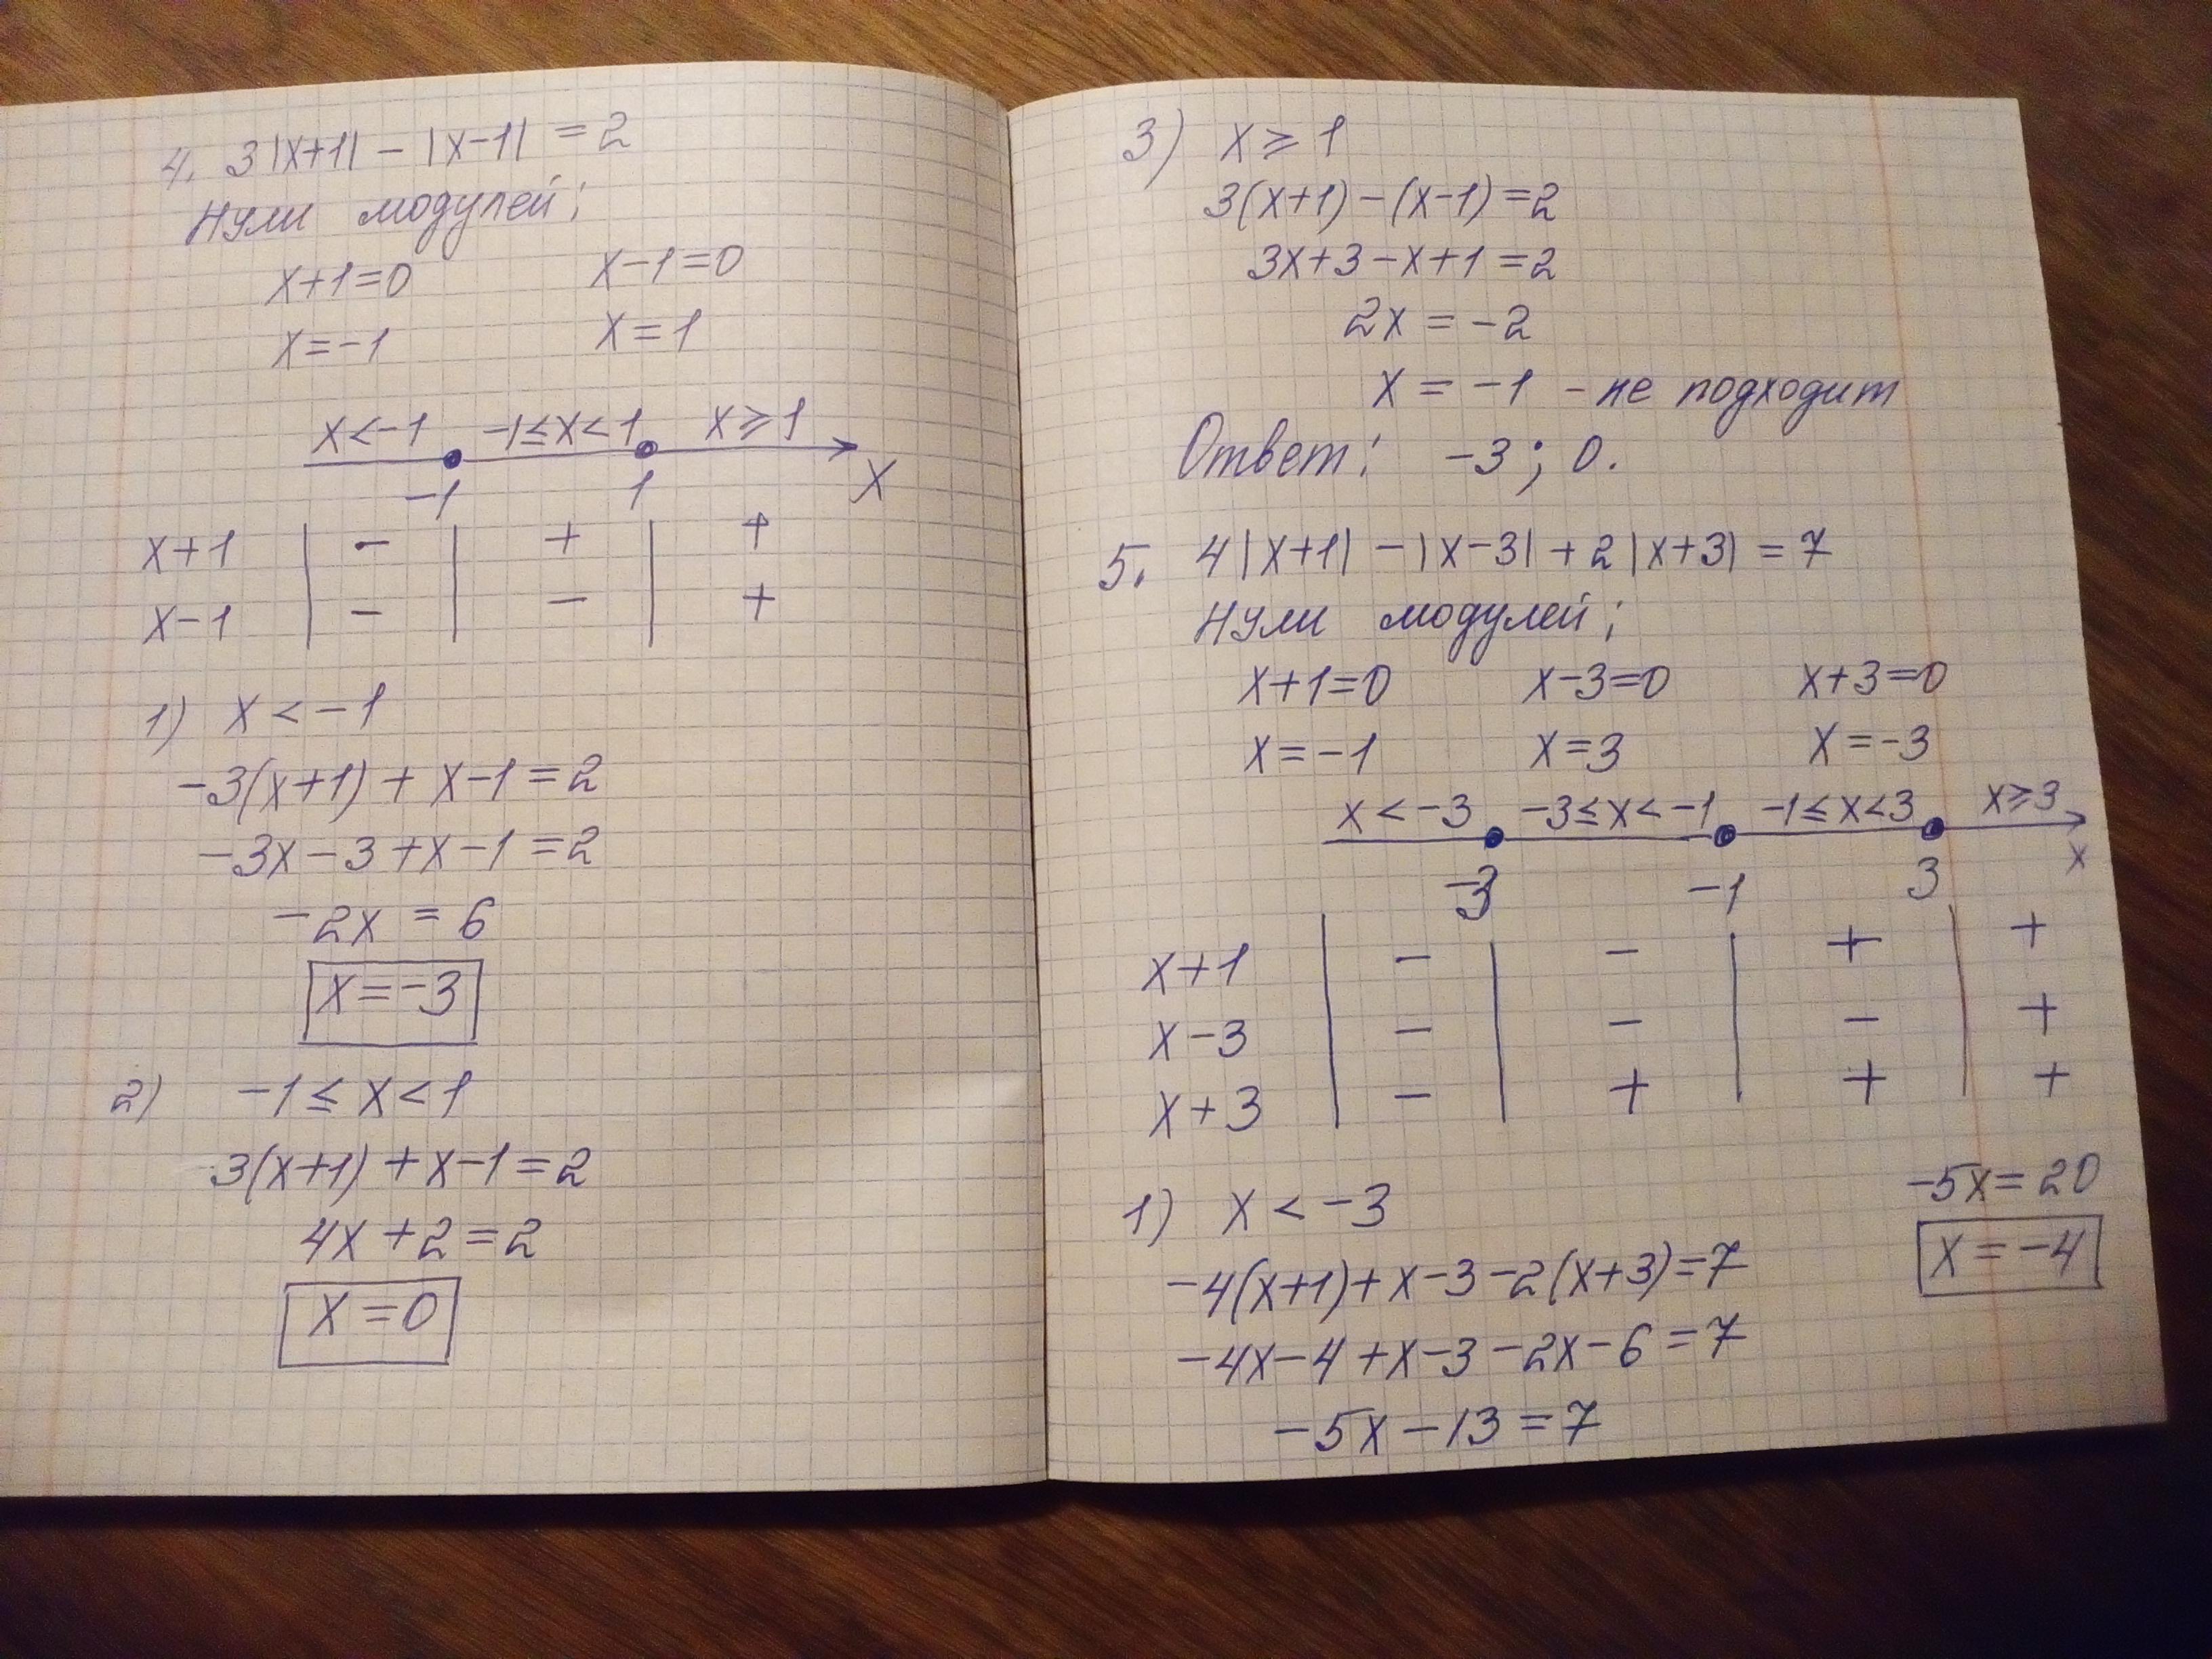 4. 3|x+1| - |x-1| = 2
Нули модулей:
x+1=0 x-1=0
x=-1 x=1
x<-1 -1≤x<1 x≥1
-1 1 x
x+1 - + +
x-1 - - +
1) x < -1
-3(x+1) + x-1 = 2
-3x-3+x-1=2
-2x = 6
x=-3
2) -1 ≤ x < 1
3(x+1) + x-1 = 2
4x+2=2
x=0
3) x ≥ 1
3(x+1)-(x-1)=2
3x+3-x+1=2
2x = -2
x = -1 - не подходит
Ответ: -3; 0.
5. 4|x+1| - |x-3| + 2|x+3| = 7
Нули модулей:
x+1=0 x-3=0 x+3=0
x=-1 x=3 x=-3
x < -3 -3≤x<-1 -1≤x<3 x≥3
-3 -1 3 x
x+1 - - + +
x-3 - - - +
x+3 - + + +
1) x < -3
-4(x+1)+x-3-2(x+3)=7
-4x-4+x-3-2x-6=7
-5x-13=7
-5x=20
x=-4